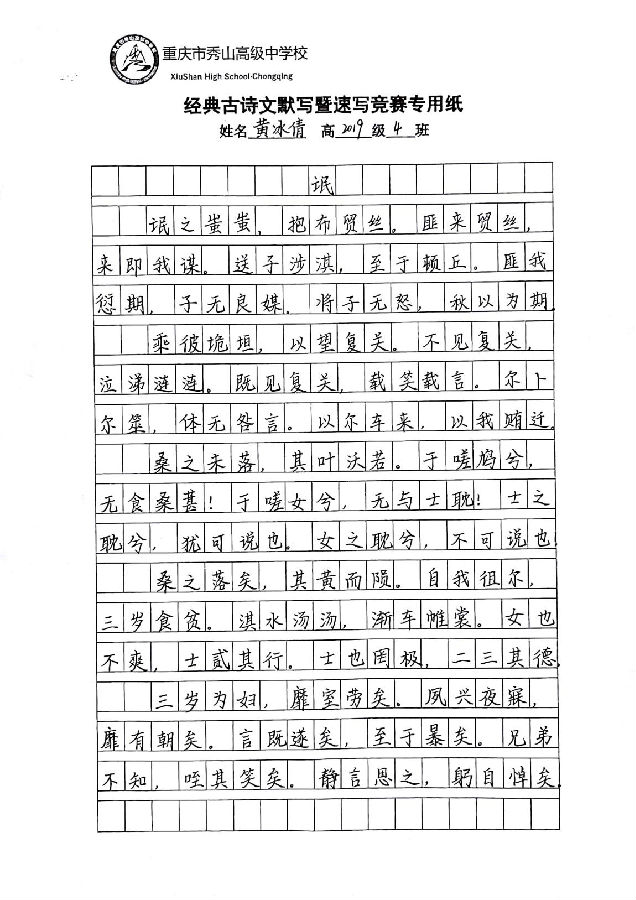 重庆市秀山高级中学校
XiuShan High School·Chongqing
经典古诗文默写暨速写竞赛专用纸
姓名 黄冰倩 高 2019 级 4 班
氓
氓之蚩蚩，抱布贸丝。匪来贸丝，
来即我谋。送子涉淇，至于顿丘。匪我
愆期，子无良媒。将子无怒，秋以为期。
乘彼垝垣，以望复关。不见复关，
泣涕涟涟。既见复关，载笑载言。尔卜
尔筮，体无咎言。以尔车来，以我贿迁。
桑之未落，其叶沃若。于嗟鸠兮，
无食桑葚！于嗟女兮，无与士耽！士之
耽兮，犹可说也。女之耽兮，不可说也
桑之落矣，其黄而陨。自我徂尔，
三岁食贫。淇水汤汤，渐车帷裳。女也
不爽，士贰其行。士也罔极，二三其德。
三岁为妇，靡室劳矣。夙兴夜寐，
靡有朝矣。言既遂矣，至于暴矣。兄弟
不知，咥其笑矣。静言思之，躬自悼矣。